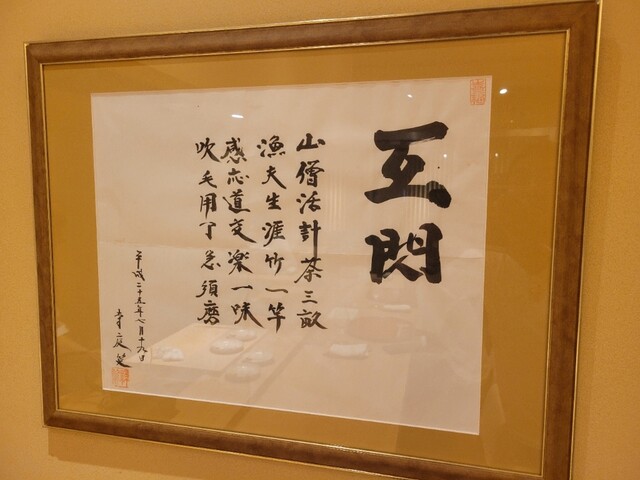 互閃
山僧活計茶三畝
漁夫生涯竹一竿
感応道交楽一味
吹毛用了急須磨
平成二十五年七月十九日